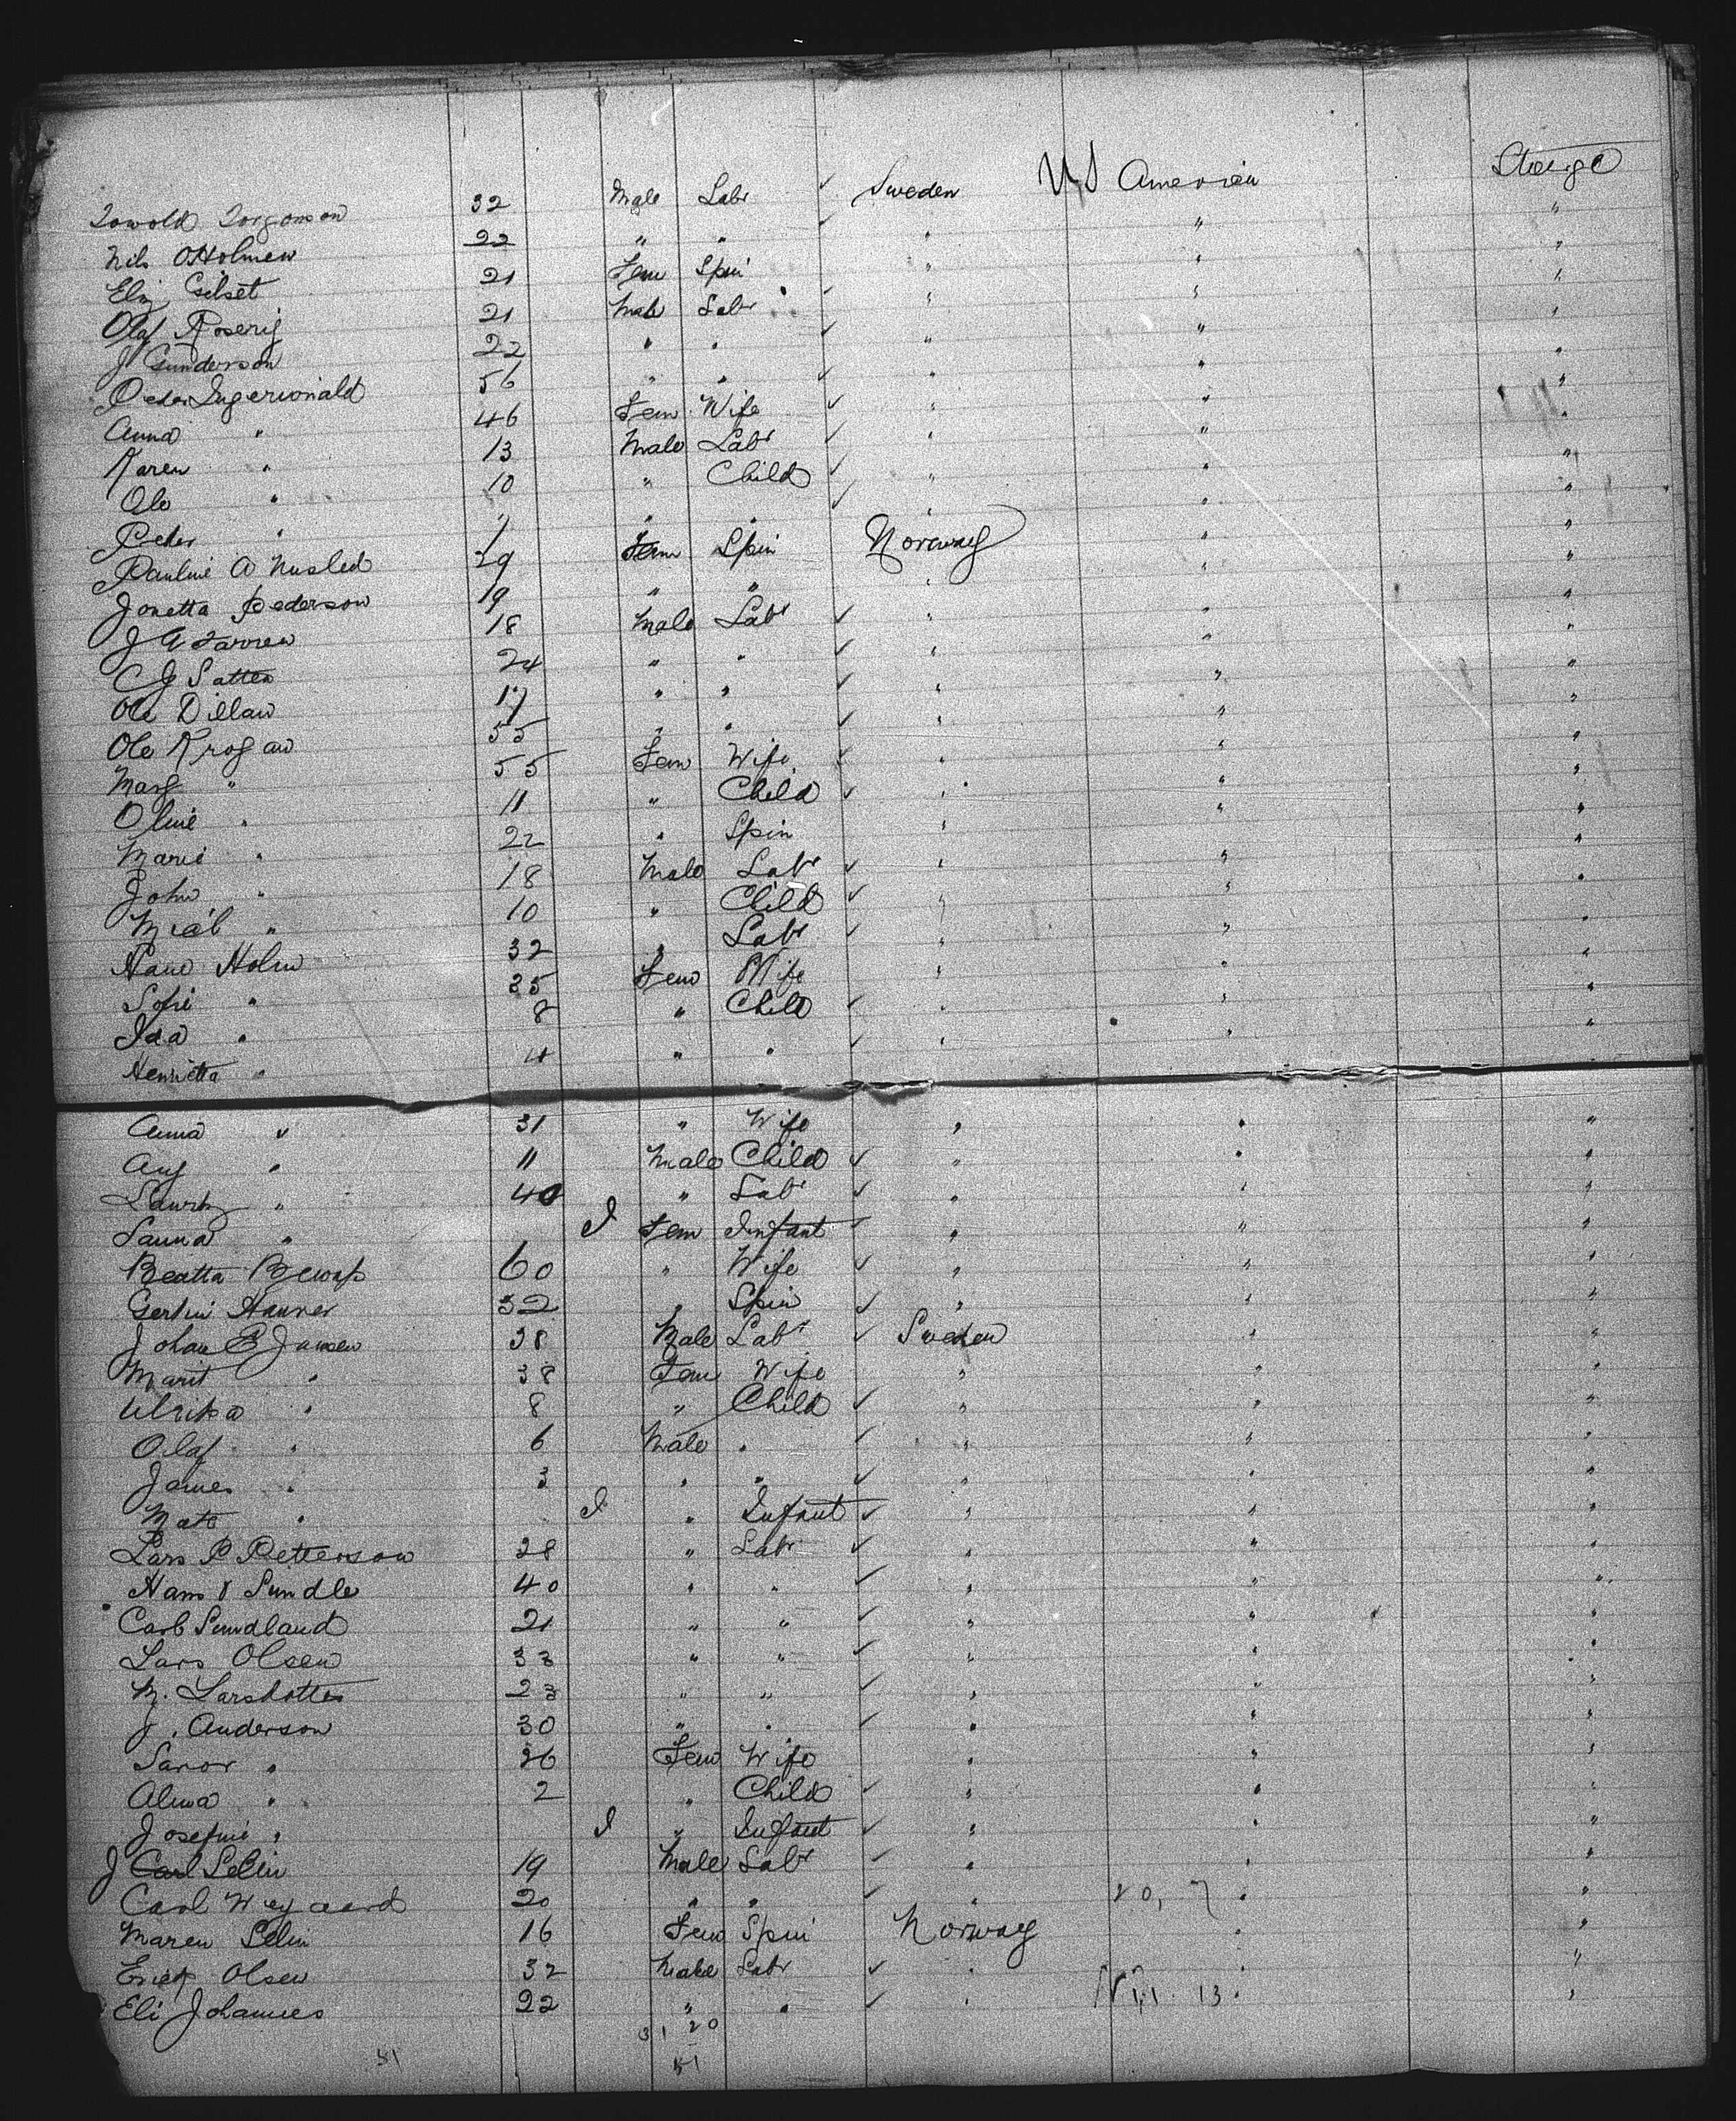 Torgomson 32 Male Labr ✓ Sweden US American Steerge
Nils O Holmen 22 " " ✓ " " "
Eliz Gilset 21 Fem Spin " " "
Olaf Roserig 21 Male Labr ✓ " " "
J Gunderson 22 " " ✓ " " "
Peder 56 " " ✓ " " "
Anna " 46 Fem Wife ✓ " " "
Karen " 13 Male Labr ✓ " " "
Ole " 10 " Child ✓ " " "
Peter " 7 " " ✓ " " "
Pauline A Husled 29 Fem Spin Norway " "
Jonetta Pederson 19 " " " " "
J A 18 Male Labr ✓ " " "
C J Satten 24 " " ✓ " " "
Ole Dillan 17 " " ✓ " " "
Ole Krogan 55 " " ✓ " " "
Marg " 55 Fem Wife ✓ " " "
Oline " 11 " Child ✓ " " "
Marie " 22 " Spin " " "
John " 18 Male Labr ✓ " " "
" 10 " Child ✓ " " "
Holm 32 " Labr ✓ " " "
Sofie " 35 Fem Wife " " "
Ida " 8 " Child ✓ " " "
Henrietta " 4 " " ✓ " " "
Anna " 31 " Wife " " "
Aug " 11 Male Child ✓ " " "
Lauritz " 40 " Labr ✓ " " "
Launa " I Fem Infant ✓ " " "
Beatta 60 " Wife ✓ " " "
Hauner 32 " Spin ✓ " " "
Johan E Jansen 38 Male Labr ✓ Sweden " "
Marit " 38 Fem Wife " " "
Ulrika " 8 " Child ✓ " " "
Olaf " 6 Male " ✓ " " "
James " 3 " " ✓ " " "
Mats " I " Infant ✓ " " "
Lars P Petterson 28 " Labr ✓ " " "
Hans Sundle 40 " " ✓ " " "
Carl Sundland 21 " " ✓ " " "
Lars Olsen 33 " " ✓ " " "
M. Larsdotter 23 " " ✓ " " "
J. Anderson 30 " " ✓ " " "
" 26 Fem Wife " " "
Alma " 2 " Child ✓ " " "
Josefine " I " Infant ✓ " " "
J Carl Selin 19 Male Labr ✓ " " "
Carl Weygaard 20 " " ✓ " 20, 7 " "
Maren Selin 16 Fem Spin Norway " "
Erick Olsen 32 Male Labr ✓ " " "
Eli Johannes 22 " " ✓ " 13 " "
31 20
51 51